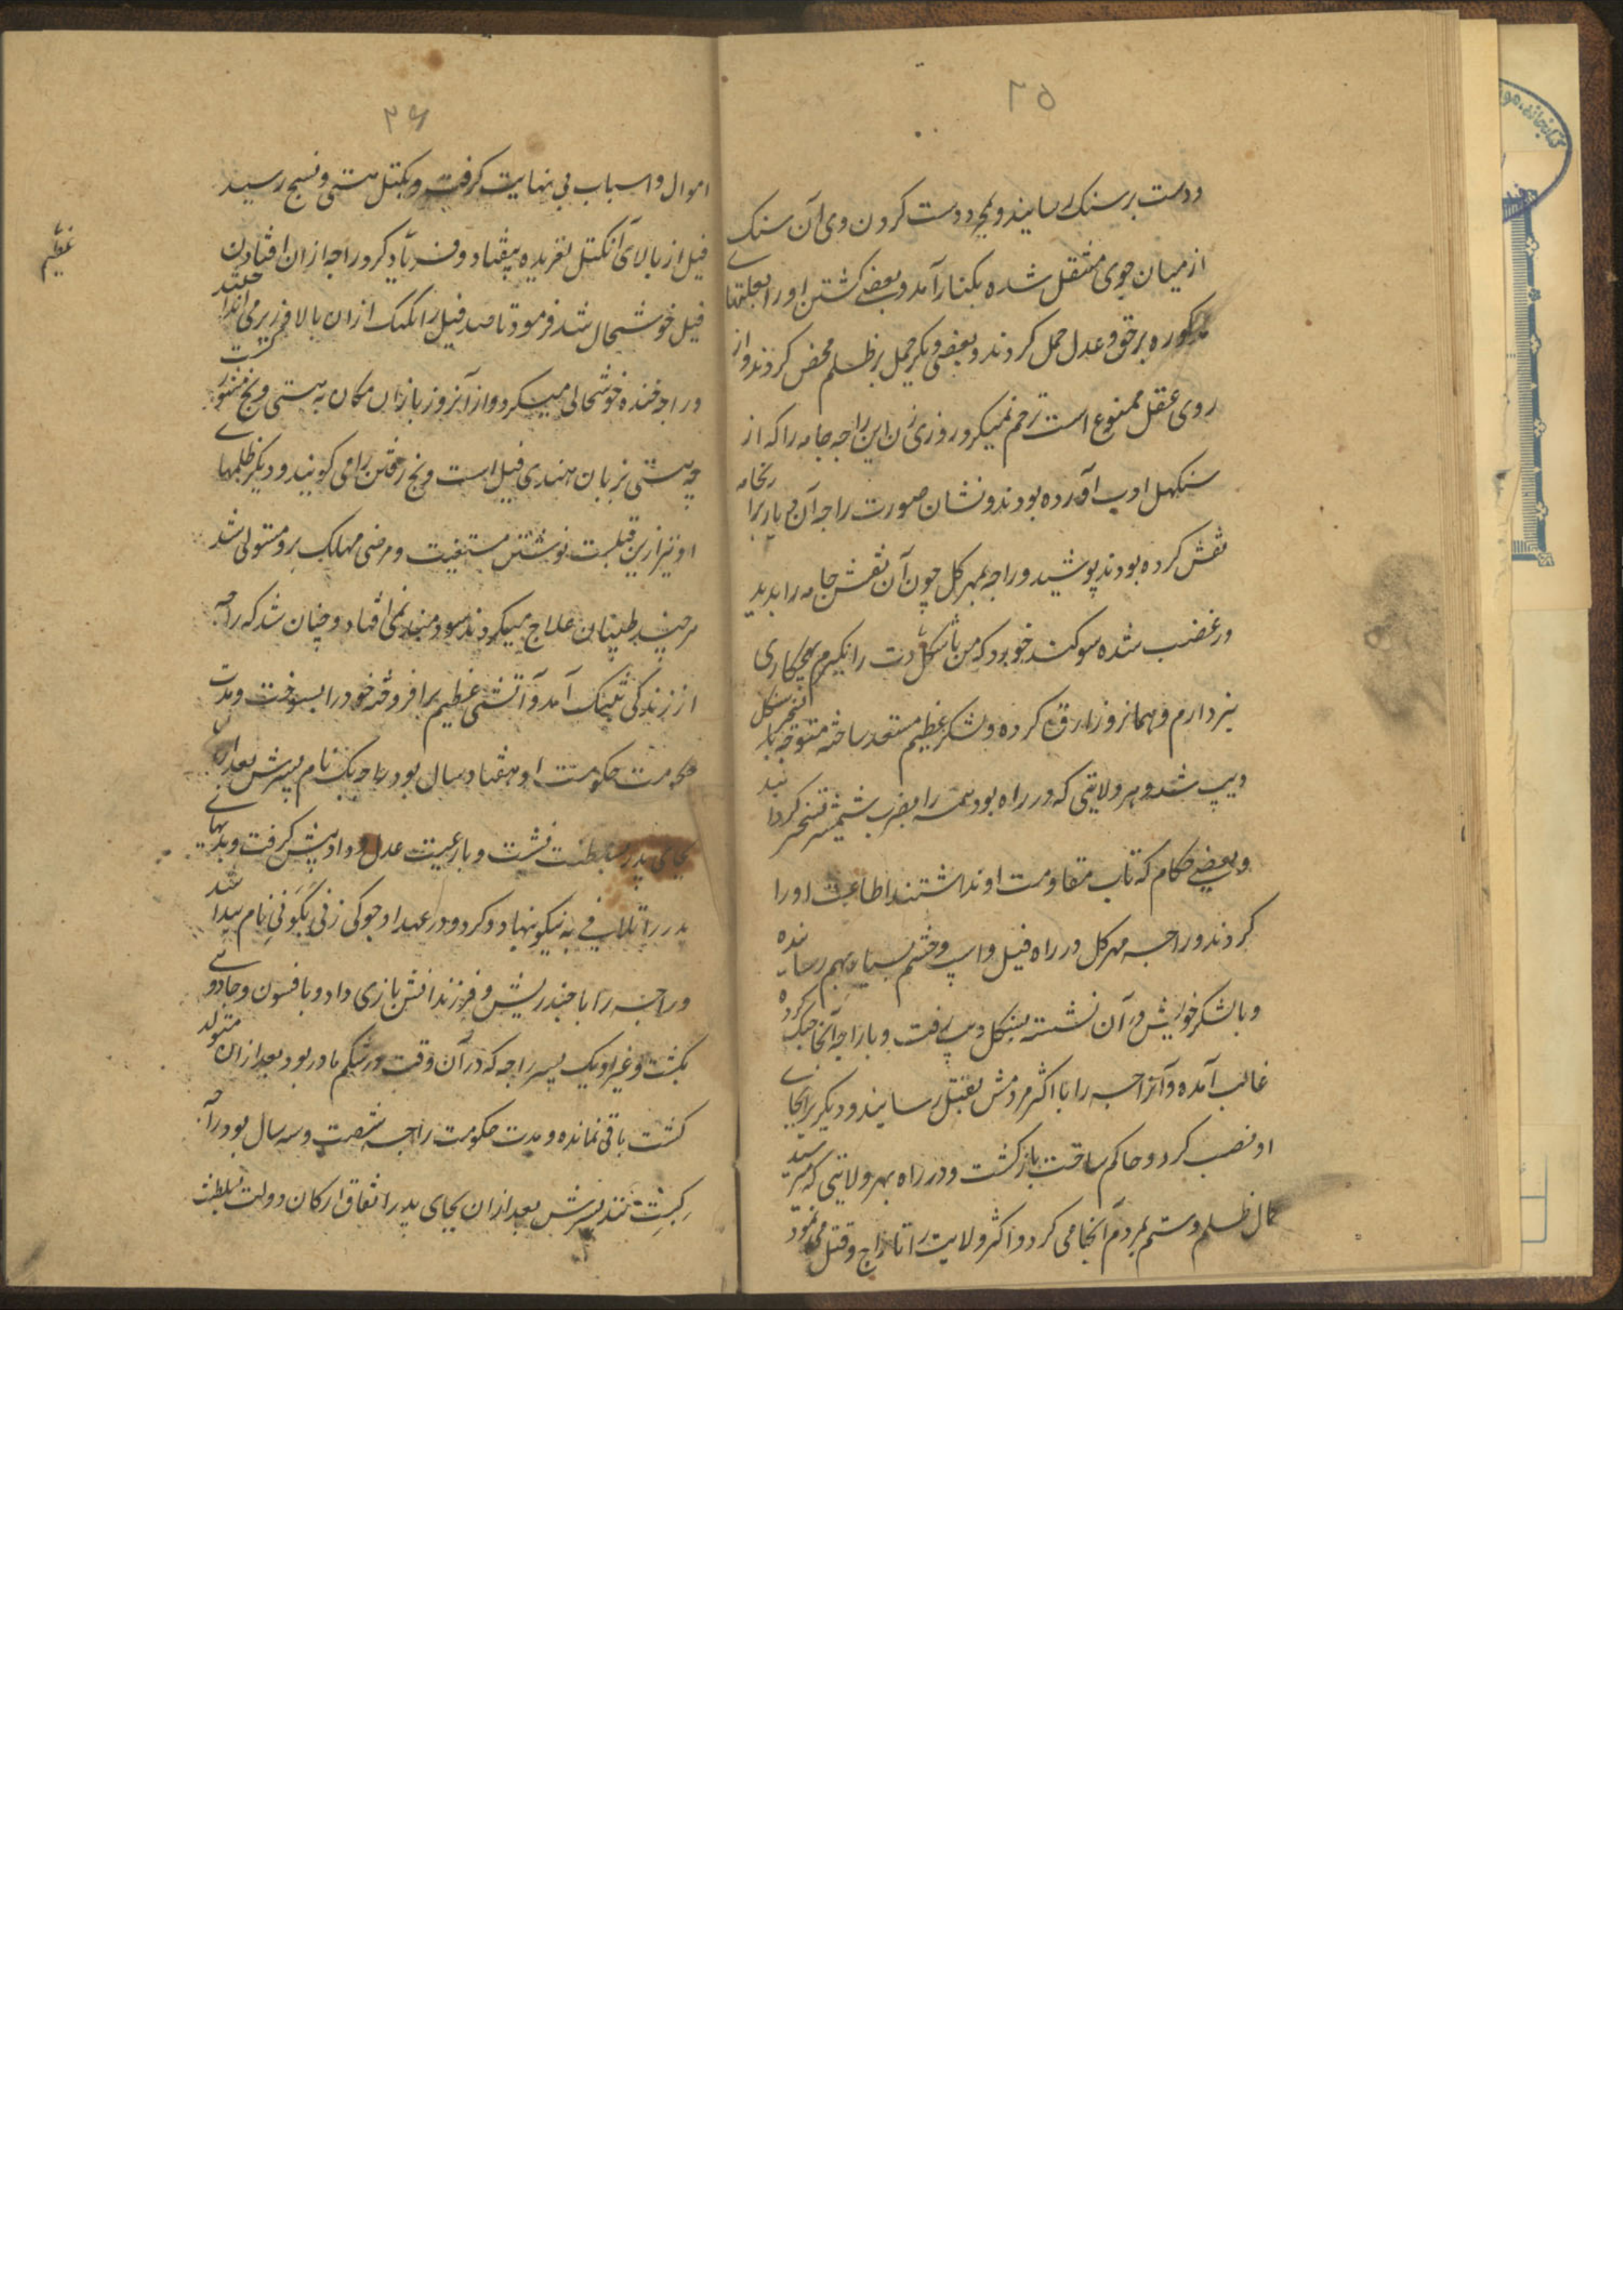 دست بر سنک رسانیند و بمجرد دست کردن وی آن سنک
از میان جوی منتقل شده بکنار آمد و بعضے کشتن او را بعلتهاے
مذکوره بر حق و عدل حمل کردند و بعضی دیکر حمل بر ظلم محض کردند و از
روی عقل ممنوع است ترحم نمیکرد روزی زن این راجه جامه را که از
سنکهل دیب آورده بودند و نشان صورت راجه آن دیار بر آنجامه
نقش کرده بودند پوشید و راجه مهر کل چون آن نقش جامه را بدید
در غضب شده سوکند خورد که من تا سنکلدت را نکیرم بهیچ کاری
نپردازم و همانروز کرده و لشکر عظیم مستعد ساخته متوجه تسخیر سنکل
دیپ شد و هر ولایتی که در راه بود همه را بضرب شمشیر تسخیر کردانید
و بعضے حکام که تاب مقاومت او نداشتند اطاعت او را
کردند و راجه مهر کل در راه فیل و اسپ و حشم بسیار بهم رسانیده
و با لشکر خویش در آن نشسته بسنکل دیپ رفت و با راجه آنجا جنک کرده
غالب آمده و آنراجه را با اکثر مردمش بقتل رسانیند و دیکریرا بجاے
او نصب کرد و حاکم ساخت باز کشت و در راه بهر ولایتی که میرسید
کمال ظلم و ستم بمردم آنجا می کرد و اکثر ولایت را تاراج و قتل می نمود
۳۶
اموال و اسباب بی نهایت کرفت و بکتل هستی ونج رسید
فیل از بالای آنکتل لغزیده بیفتاد و فریاد کرد و راجه از ان افتادن
فیل خوشحال شد فرمود تا صد فیل را یکیک از ان بالا فرزیر می انداختند
و راجه خنده خوشحالی میکرد و از آنروز باز ان مکان به هستی ونج مشهور کشت
چه هستی بزبان هندی فیل است و نج رفتن را می کویند و دیکر ظلمهاے
او نیز ازین قبلست نوشتن مستغنیست و مرضی مهلک برو مستولی شد
هر چند طبیبان علاج میکردند سود مند نمی افتاد و چنان شد که راجه
از زندکی بتنک آمد و آتشی عظیم بر افروخته خود را بسوخت و مدت
حکومت او هفتاد سال بود راجه بک نام پسرش بعد از ان
بجای پدر بسلطنت نشست و با رعیت عدل و داد پیش کرفت و بدیهاے
پدر را تلافی به نیکو نهاد و کرد و در عهد او جوکی زنی نکونی نام پیدا شد
و راجه را با چند ریش و فرزندانش بازی داد و بافسون و جادوے
بکشت و غیر او یک پسر راجه که در آن وقت در شکم مادر بود بعد از ان متولد
کشت باقی نمانده و مدت حکومت راجه شصت و سه سال بود راجه
کبت نند پسرش بعد از ان بجای پدر باتفاق ارکان دولت بسلطنت
عظیم